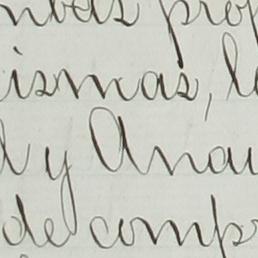 mbas prop
ismas, l
l y Anau
de comps